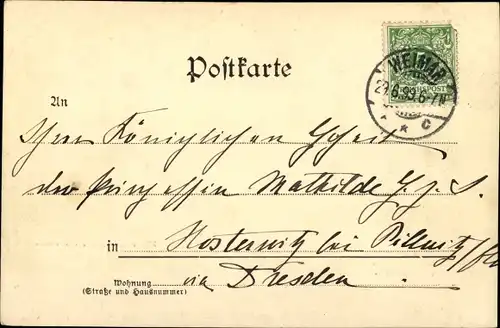 Postkarte
WEIMAR
6.99.6-7N
* C
An
Ihrer Königlichen Hoheit
der Prinzessin Mathilde H. z. S.
in Hosterwitz bei Pillnitz
Wohnung
(Straße und Hausnummer)
via Dresden